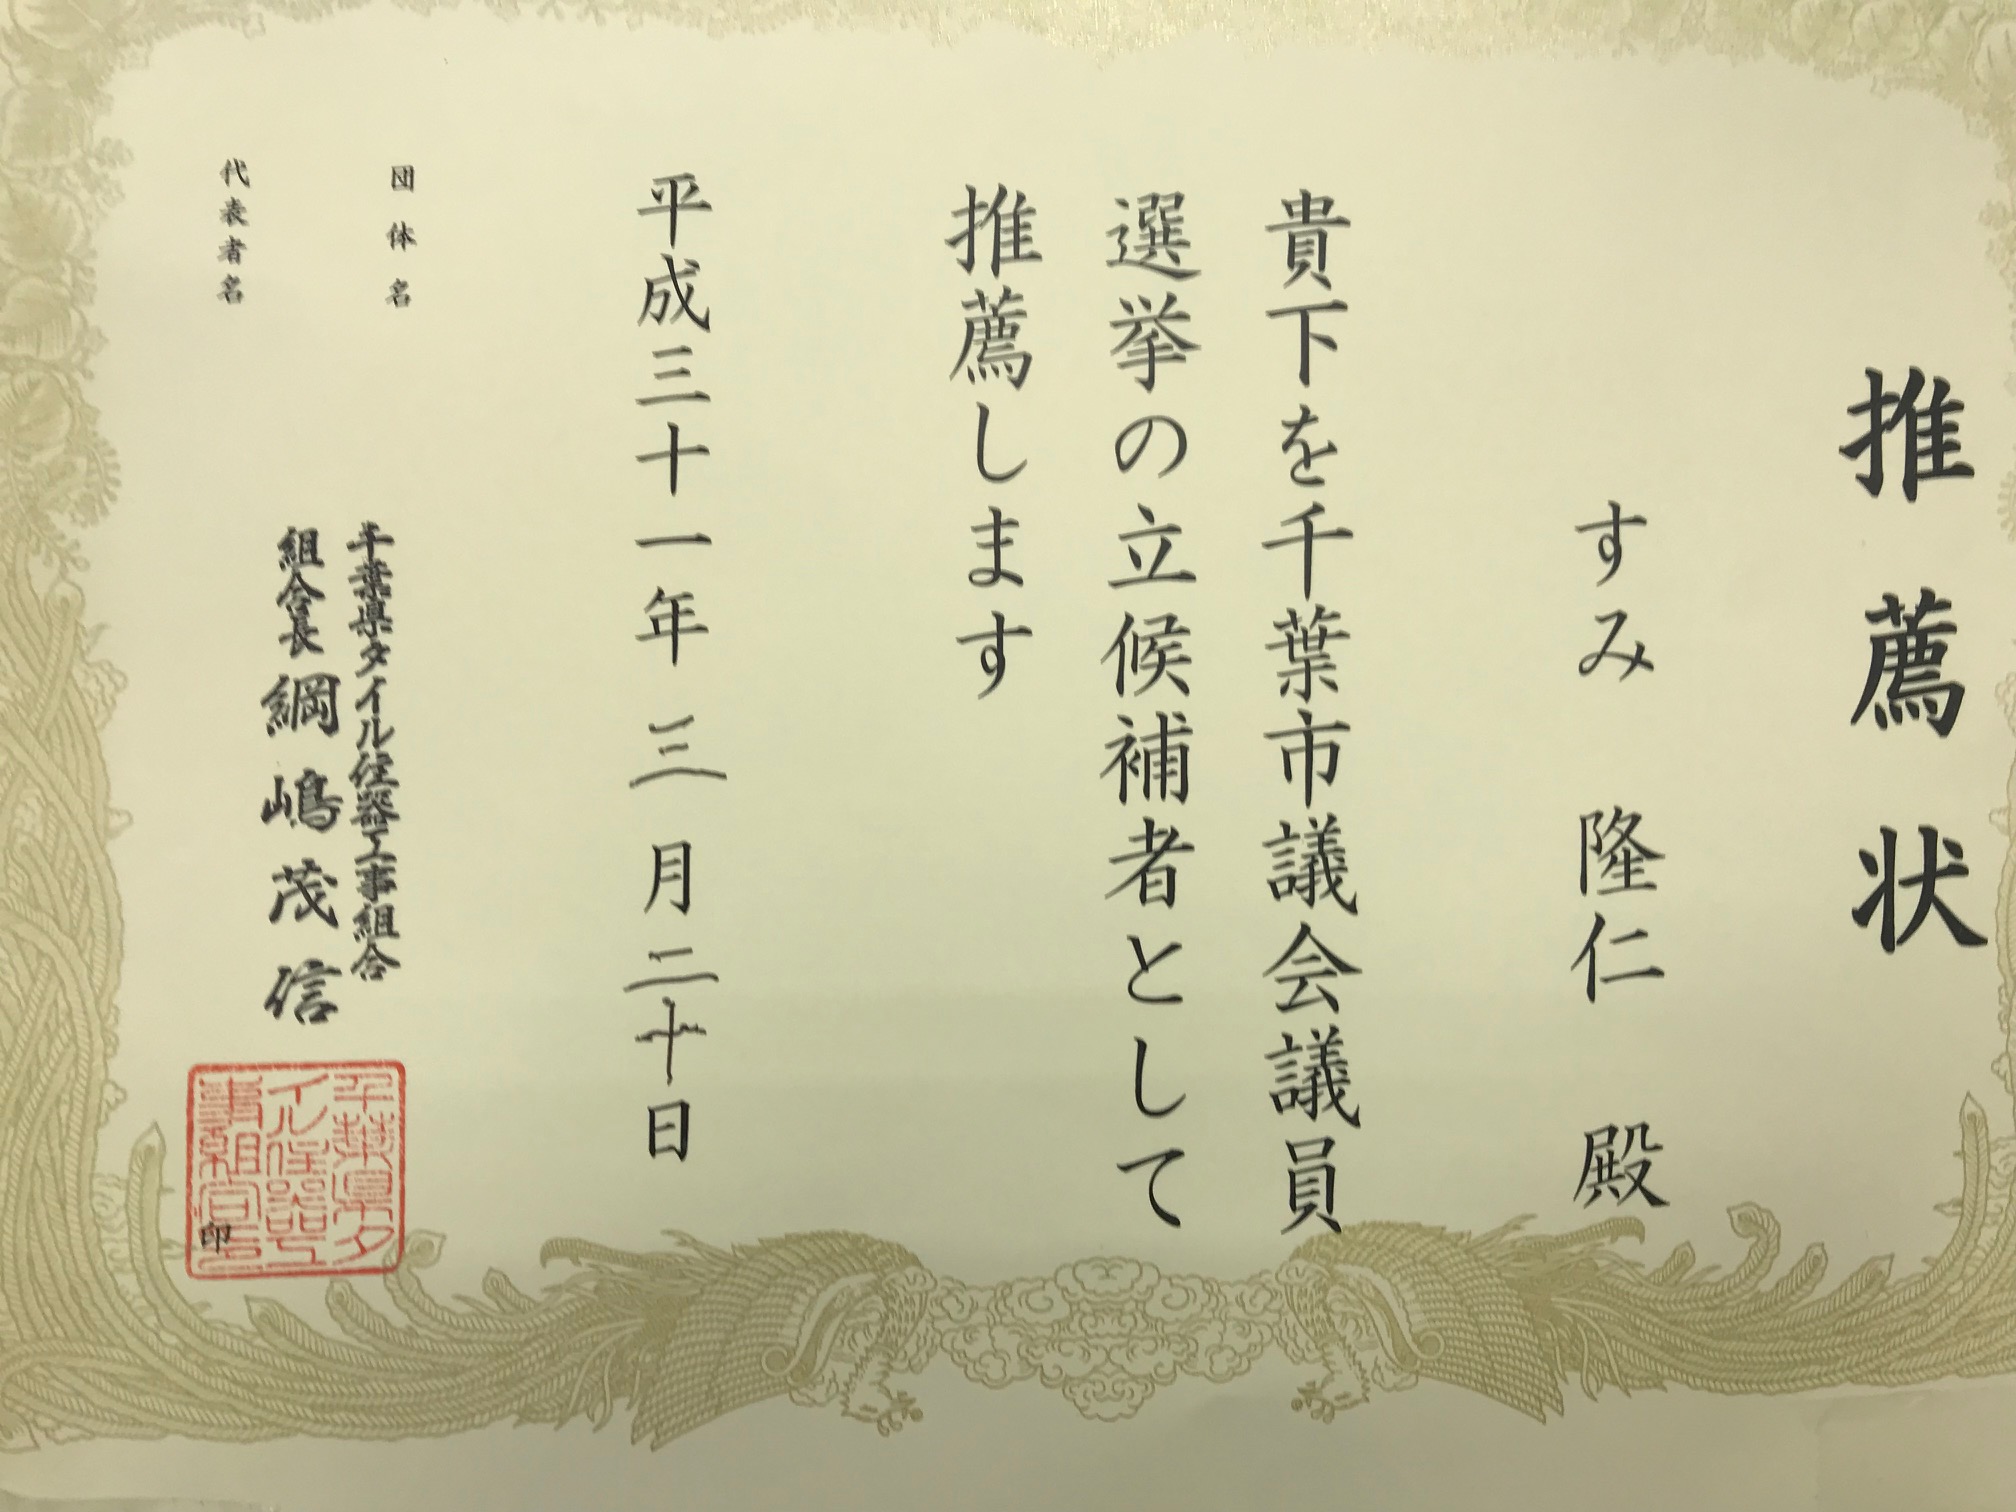 推薦状
すみ 隆仁 殿
貴下を千葉市議会議員
選挙の立候補者として
推薦します
平成三十一年 三 月 二十 日
団体名
千葉県タイル住器工事組合
代表者名
組合長 綱嶋茂信
印